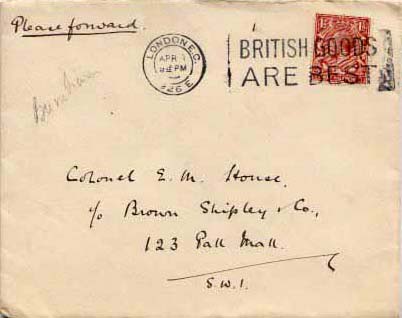 Please forward.
LONDON. E.C.
APR
PM
1926 E
BRITISH GOODS
ARE BEST
Colonel E. M. House.
c/o Brown Shipley & Co.,
123 Pall Mall.
S.W.1.